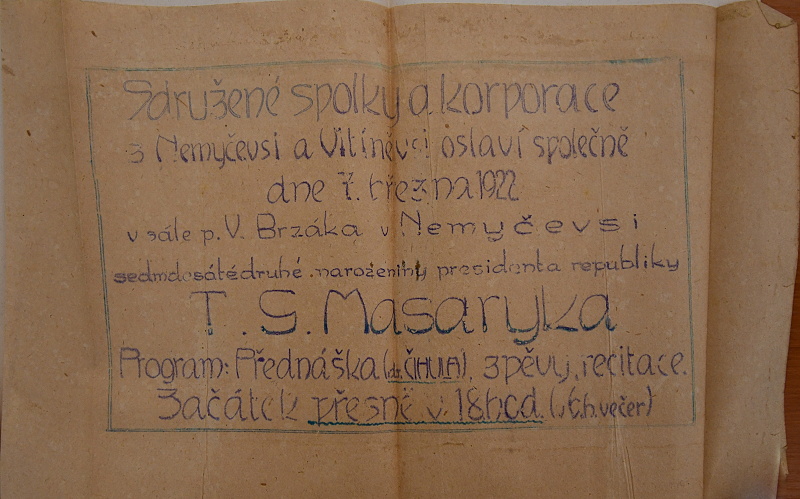 Sdružené spolky a korporace
z Nemyčevsi a Vitíněvsi oslaví společně
dne 7. března 1922
v sále p. V. Brzáka v Nemyčevsi
sedmdesátédruhé narozeniny presidenta republiky
T. G. Masaryka
Program: Přednáška (dr. ČIHULA), zpěvy, recitace.
Začátek přesně v 18 hod. (v 6. h. večer)